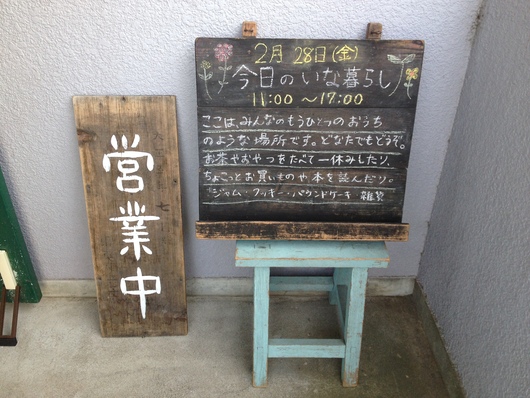 営業中
2月 28日(金)
今日のいな暮らし
11:00 〜17:00
ここは、みんなのもうひとつのおうち
のような場所です。どなたでもどうぞ。
お茶やおやつをたべて一休みしたり、
ちょこっとお買いものや本を読んだり。
ジャム・クッキー・パウンドケーキ 雑貨